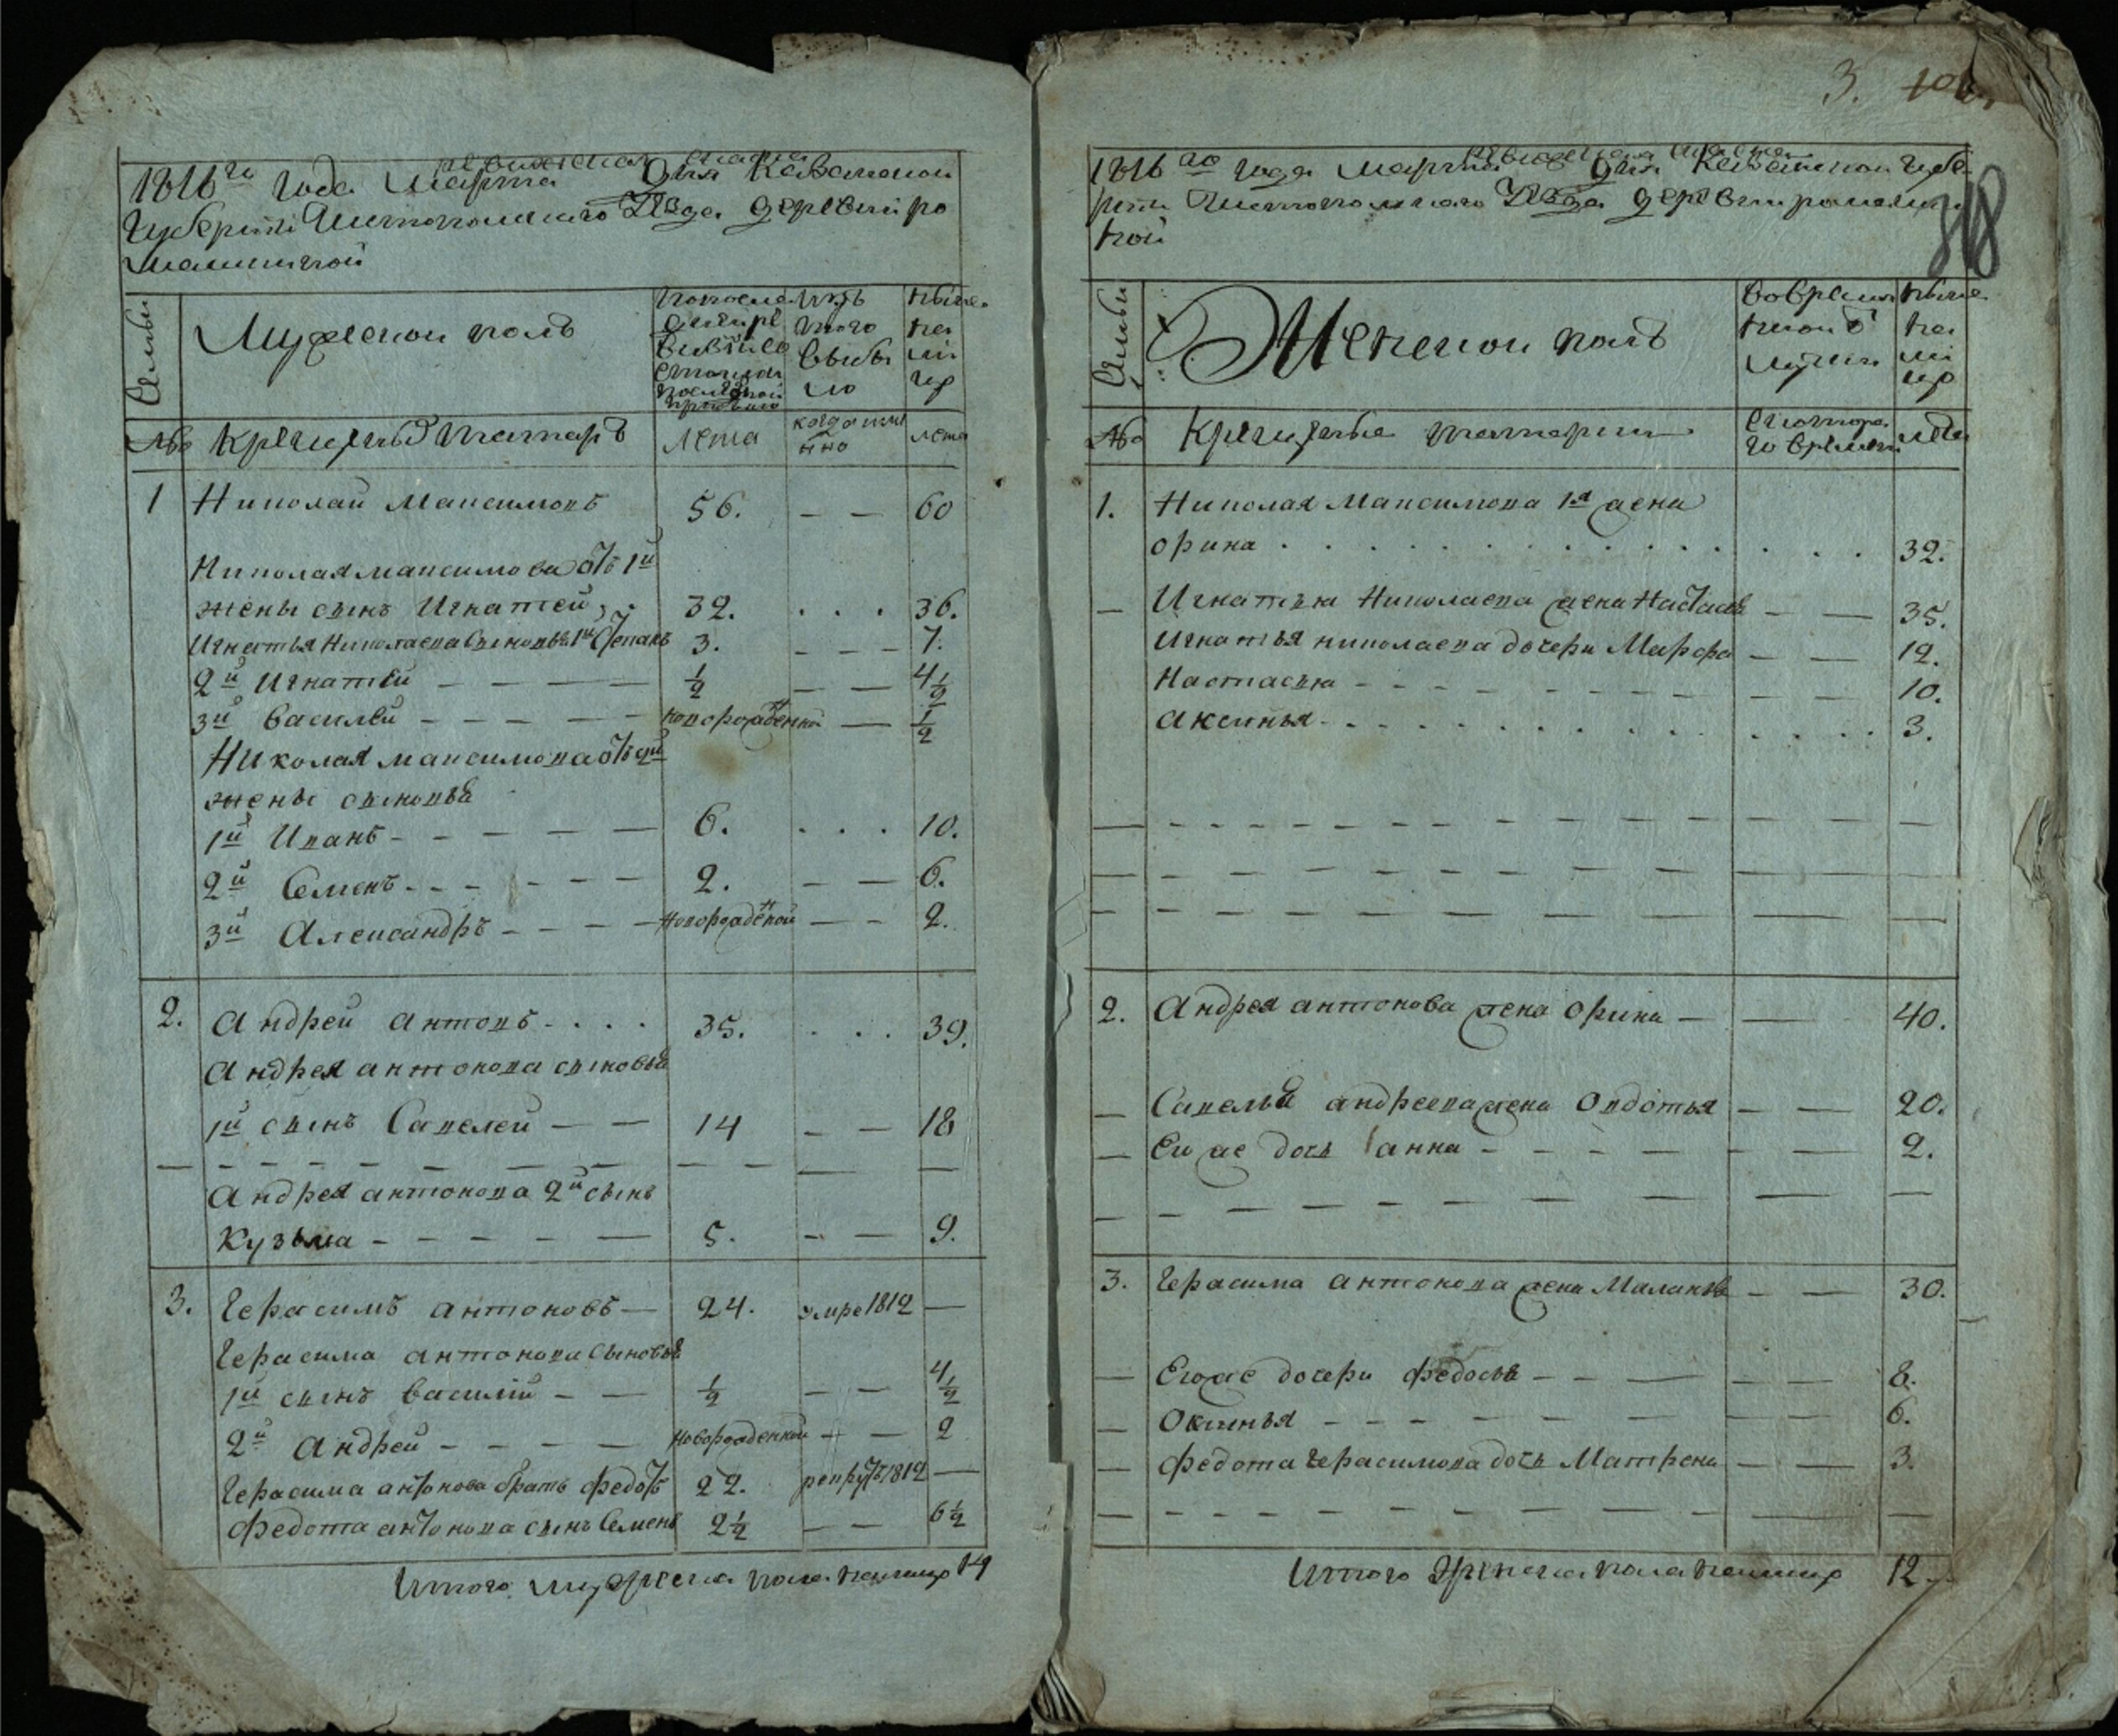 ревижская скаска
1816го года Марта Дня Казанской
Губернiи Чистопольскаго Уѣзда деревни Ро
машкиной
Семьи
Мужескои полъ
попослед
ней ре
визiи со
стояло и
после оной
прибыло
изъ
того
выбы
ло
ныне
на
ли
цо
№ Крещеныѣ татаръ
лета
когда имян
но
лета
1 Николай Максимовъ 56. — — 60
Николая максимова отъ 1й
жены сынъ Игнатей 32. . . . 36.
Игнатья Николаева сыновья 1й Степанъ 3. — — — 7.
2й Игнатей — — — — 1/2 — — 4 1/2
3й Василей — — — — новорожденной — 1/2
Николая максимова отъ 2й
жены сыновья
1й Иванъ — — — — 6. . . . 10.
2й Семенъ — — — — 2. — — 6.
3й Александръ — — — — новорожденой — — 2.
2. Андрей антоновъ . . . . 35. . . . 39.
Андрея антонова сыновья
1й сынъ Савелей — — 14 — — 18
Андрея антонова 2й сынъ
Кузьма — — — — — 5. — — 9.
3. Герасимъ антоновъ — 24. умре 1812 —
Герасима антонова сыновья
1й сынъ Василiй — — 1/2 — — 4 1/2
2й Андрей — — — — новорожденной — — 2
Герасима антонова братъ Федотъ 22. рекрутъ 1812 —
Федота антонова сынъ Семенъ 2 1/2 — — 6 1/2
Итого мужеска пола налицо 14
3.
318
ревижская скаска
1816го года марта Дня Казанской Губе
рнiи Чистопольскаго Уѣзда деревни ромашки
ной
Семьи
Женскои полъ
вовремян
ной отъ
лучки
ныне
на
ли
цо
№ Крещеные татарки
скоторо
го времяни
лета
1. Николая Максимова 1я жена
Орина . . . . . . . . . . . . . . . 32.
— Игнатья Николаева жена Настасья — — 35.
Игнатья николаева дочери Марфа — — 12.
Настасья — — — — — — — — 10.
Аксинья . . . . . . . . . . . . . . 3.
2. Андрея антонова жена Орина — — 40.
— Савелья андреева жена Овдотья — — 20.
— Ево же дочь анна — — — — — — — 2.
3. Герасима антонова жена Маланья — — 30.
— Евоже дочери Федосья — — — — — 8.
— Оксинья — — — — — — — — 6.
— Федота Герасимова дочь Матрена — — 3.
Итого женска пола налицо 12